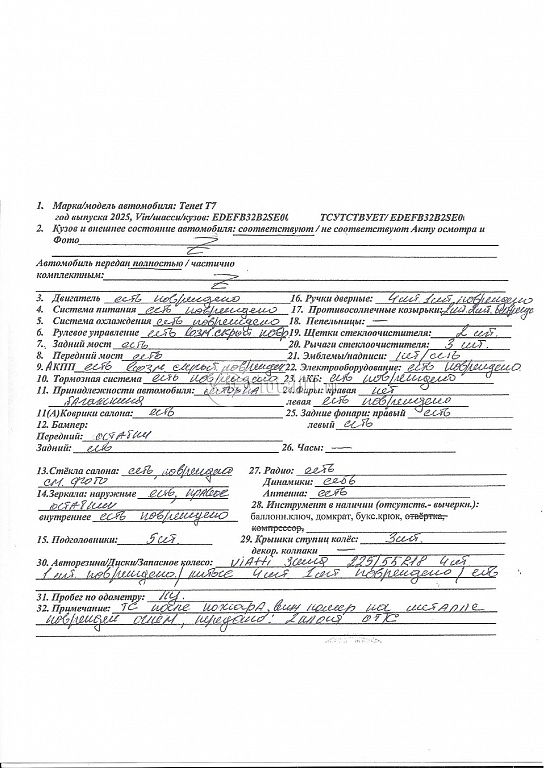 1. Марка/модель автомобиля: Tenet T7
год выпуска 2025, Vin/шасси/кузов: EDEFB32B2SE0 ТСУТСТВУЕТ/ EDEFB32B2SE0
2. Кузов и внешнее состояние автомобиля: соответствуют / не соответствуют Акту осмотра и
Фото Z
Автомобиль передан полностью / частично
комплектным: Z
3. Двигатель есть повреждено 16. Ручки дверные: 4 шт 1 шт, повреждено
4. Система питания есть повреждено 17. Противосолнечные козырьки: 2 шт
5. Система охлаждения есть повреждено 18. Пепельницы: —
6. Рулевое управление есть возм. скрыт повр 19. Щетки стеклоочистителя: 2 шт.
7. Задний мост есть 20. Рычаги стеклоочистителя: 3 шт.
8. Передний мост есть 21. Эмблемы/надписи: нет/есть
9. АКПП есть возм скрыт поврежден 22. Электрооборудование: есть повреждено
10. Тормозная система есть повреждено 23. АКБ: есть повреждено
11. Принадлежности автомобиля: 24. Фары: правая нет
багажника левая есть повреждено
11(А) Коврики салона: есть 25. Задние фонари: правый есть
12. Бампер: левый есть
Передний: остатки
Задний: есть 26. Часы: —
13. Стёкла салона: есть, повреждена 27. Радио: есть
см фото Динамики: есть
14. Зеркала: наружные есть, правое Антенна: есть
остатки 28. Инструмент в наличии (отсутств.- вычеркн.):
внутреннее есть повреждено баллонн.ключ, домкрат, букс.крюк, отвёртка,
компрессор,
15. Подголовники: 5 шт. 29. Крышки ступиц колёс: 3 шт.
декор. колпаки —
30. Авторезина/Диски/Запасное колесо: Viatti Зима 225/55 R18 4 шт
1 шт. повреждено / литые 4 шт 1 шт повреждено / есть
31. Пробег по одометру: Н.у.
32. Примечание: ТС после пожара, вин номер на металле
поврежден огнем, передано: 2 ключа ЭТС